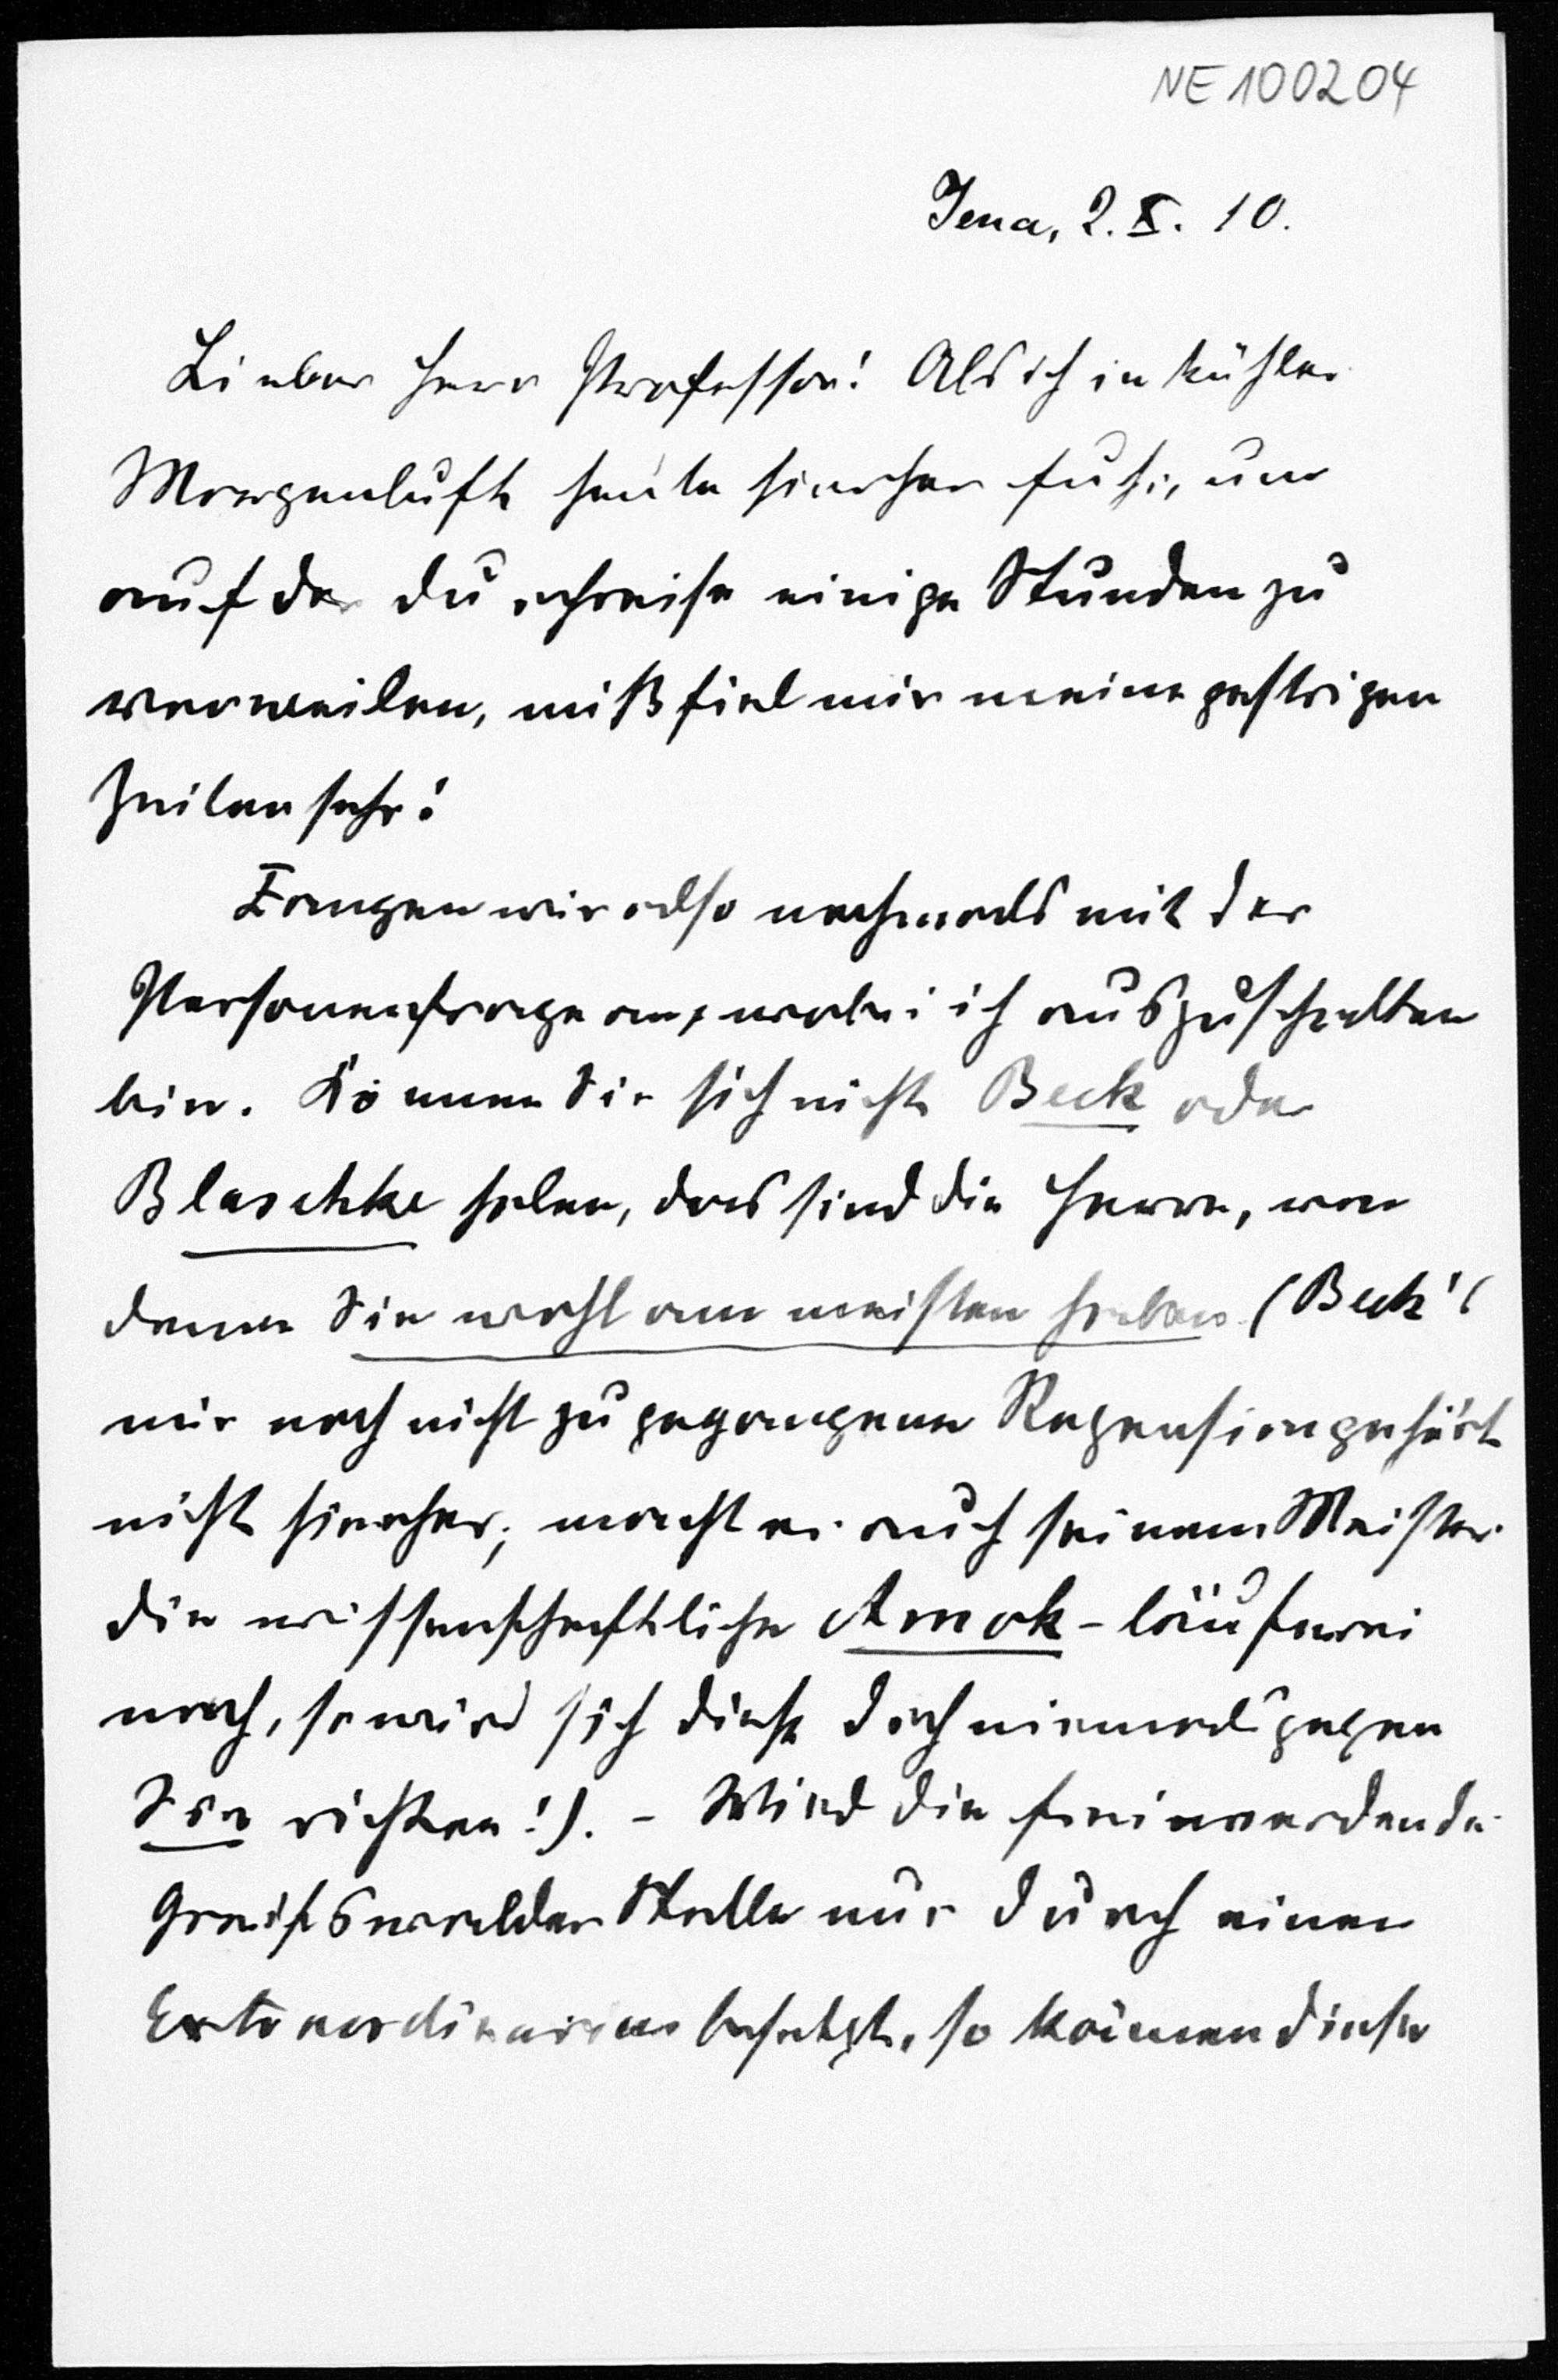 NE 100204
Jena, 2. X. 10.
Lieber Herr Professor! Als ich in kühler
Morgenluft heute hierher fuhr, um
auf der Durchreise einige Stunden zu
verweilen, mißfiel mir meine gestrigen
Zeilen sehr!
Fangen wir also nochmals mit der
Personenfrage an, wobei ich auszuschalten
bin. Können Sie sich nicht Beck oder
Blaschke holen, das sind die Herren, von
denen Sie wohl am meisten haben (Beck's
mir noch nicht zugegangene Rezension gehört
nicht hierher; macht er auch seinem Meister
die wissenschaftliche Amok-läuferei
nach, so wird sich diese doch niemals gegen
Sie richten!). – Wird die freiwerdende
Greifswalder Stelle nur durch einen
Extraordinarius besetzt, so können diese